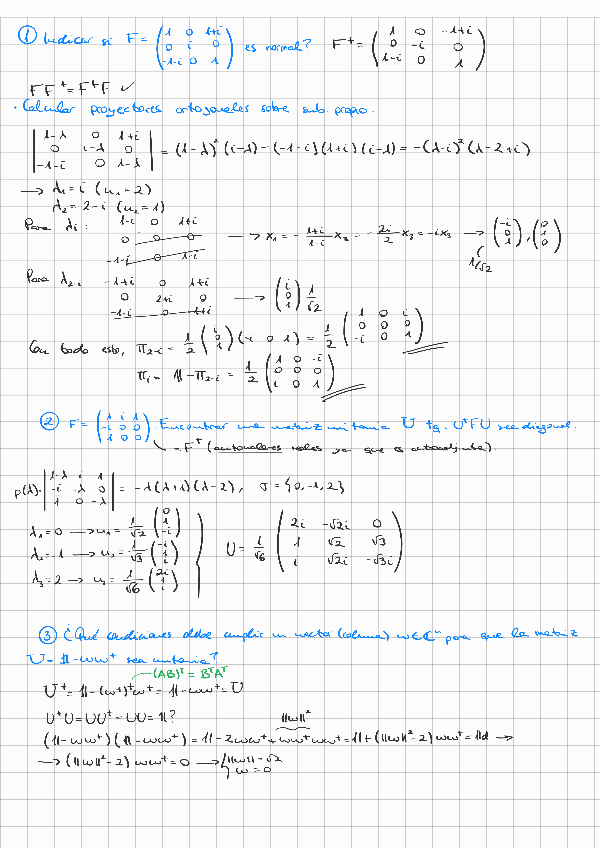 ① Indicar si F = ( 1 0 1+i ; 0 i 0 ; -1-i 0 1 ) es normal? F⁺ = ( 1 0 -1+i ; 0 -i 0 ; 1-i 0 1 )
FF⁺ = F⁺F ✓
· Calcular proyectores ortogonales sobre sub. propio.
| 1-λ 0 1+i ; 0 i-λ 0 ; -1-i 0 1-λ | = (1-λ)² (i-λ) - (-1-i)(1+i)(i-λ) = -(λ-i)² (λ-2+i)
→ λ₁ = i (u₁ = 2)
λ₂ = 2-i (u₂ = 1)
Para λi: 1-i 0 1+i ; 0 0 0 ; -1-i 0 1-i → x₁ = - (1+i)/(1-i) x₃ = - 2i/2 x₃ = -ix₃ → ( -i ; 0 ; 1 ), ( 0 ; 1 ; 0 )
1/√2
Para λ₂: -1+i 0 1+i ; 0 2+i 0 ; -1-i 0 -1+i → ( i ; 0 ; 1 ) 1/√2
Con todo esto, Π₂₋ᵢ = 1/2 ( i ; 0 ; 1 ) (-i 0 1) = 1/2 ( 1 0 i ; 0 0 0 ; -i 0 1 )
Πᵢ = 𝟙 - Π₂₋ᵢ = 1/2 ( 1 0 -i ; 0 0 0 ; i 0 1 )
② F = ( 1 i 1 ; -i 0 0 ; 1 0 0 ). Encontrar una matriz unitaria U tq. U⁺FU sea diagonal.
= F⁺ (autovalores reales ya que es autoadjunta).
p(λ) = | 1-λ i 1 ; -i -λ 0 ; 1 0 -λ | = -λ(λ+1)(λ-2), σ = {0, -1, 2}
λ₁ = 0 → u₁ = 1/√2 ( 0 ; 1 ; -i )
λ₂ = -1 → u₂ = 1/√3 ( -i ; 1 ; i )
λ₃ = 2 → u₃ = 1/√6 ( 2i ; 1 ; i )
U = 1/√6 ( 2i -√2i 0 ; 1 √2 √3 ; i √2i -√3i )
③ ¿Qué condiciones debe cumplir un vector (columna) w∈ℂⁿ para que la matriz
U = 𝟙 - ww⁺ sea unitaria?
(AB)ᵀ = BᵀAᵀ
U⁺ = 𝟙 - (w⁺)⁺w⁺ = 𝟙 - ww⁺ = U
U⁺U = UU⁺ = UU = 𝟙?
‖w‖²
(𝟙 - ww⁺)(𝟙 - ww⁺) = 𝟙 - 2ww⁺ + ww⁺ww⁺ = 𝟙 + (‖w‖² - 2) ww⁺ = 𝟙d →
→ (‖w‖² - 2) ww⁺ = 0 → { ‖w‖ = √2 ; w = 0